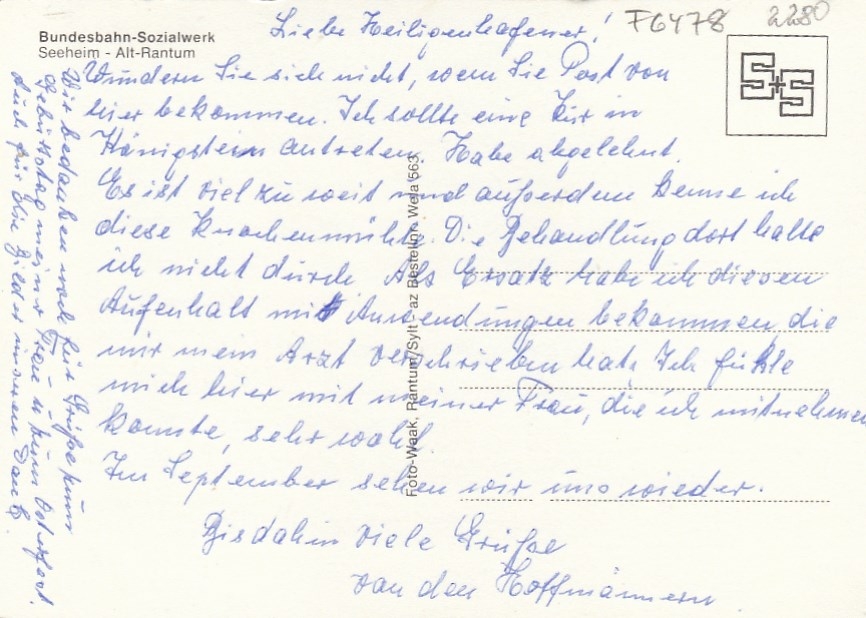 Bundesbahn-Sozialwerk
Seeheim - Alt-Rantum
F6478
2280
Liebe Heiligenhafener!
Wundern Sie sich nicht, wenn Sie Post von
hier bekommen. Ich sollte eine Kur in
Königstein antreten. Habe abgelehnt.
Es ist viel zu weit und außerdem kenne ich
diese Knochenmühle. Die Behandlung dort halte
ich nicht durch. Als Ersatz habe ich diesen
Aufenthalt mit Anwendungen bekommen, die
mir mein Arzt verschrieben hat. Ich fühle
mich hier mit meiner Frau, die ich mitnehmen
konnte, sehr wohl.
Im September sehen wir uns wieder.
Bis dahin viele Grüße
von den Hoffmännern
Wir bedanken uns für Grüße zum
Geburtstag meiner Frau u. zum Osterfest.
Auch für die Bilder unseren Dank.
Foto-Waak, Rantum/Sylt - az Bestellnr. Weja 563